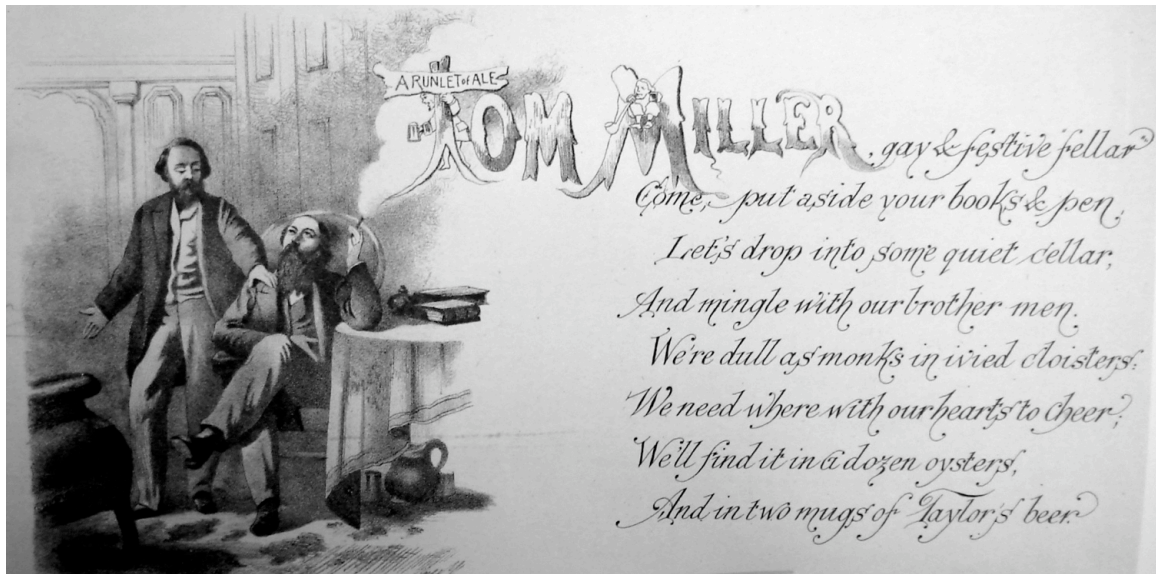 A RUNLET of ALE
TOM MILLER, gay & festive fellar
Come, put aside your books & pen,
Let's drop into some quiet cellar,
And mingle with our brother men.
We're dull as monks in ivied cloisters:
We need where with our hearts to cheer;
We'll find it in a dozen oysters,
And in two mugs of Taylor's beer.